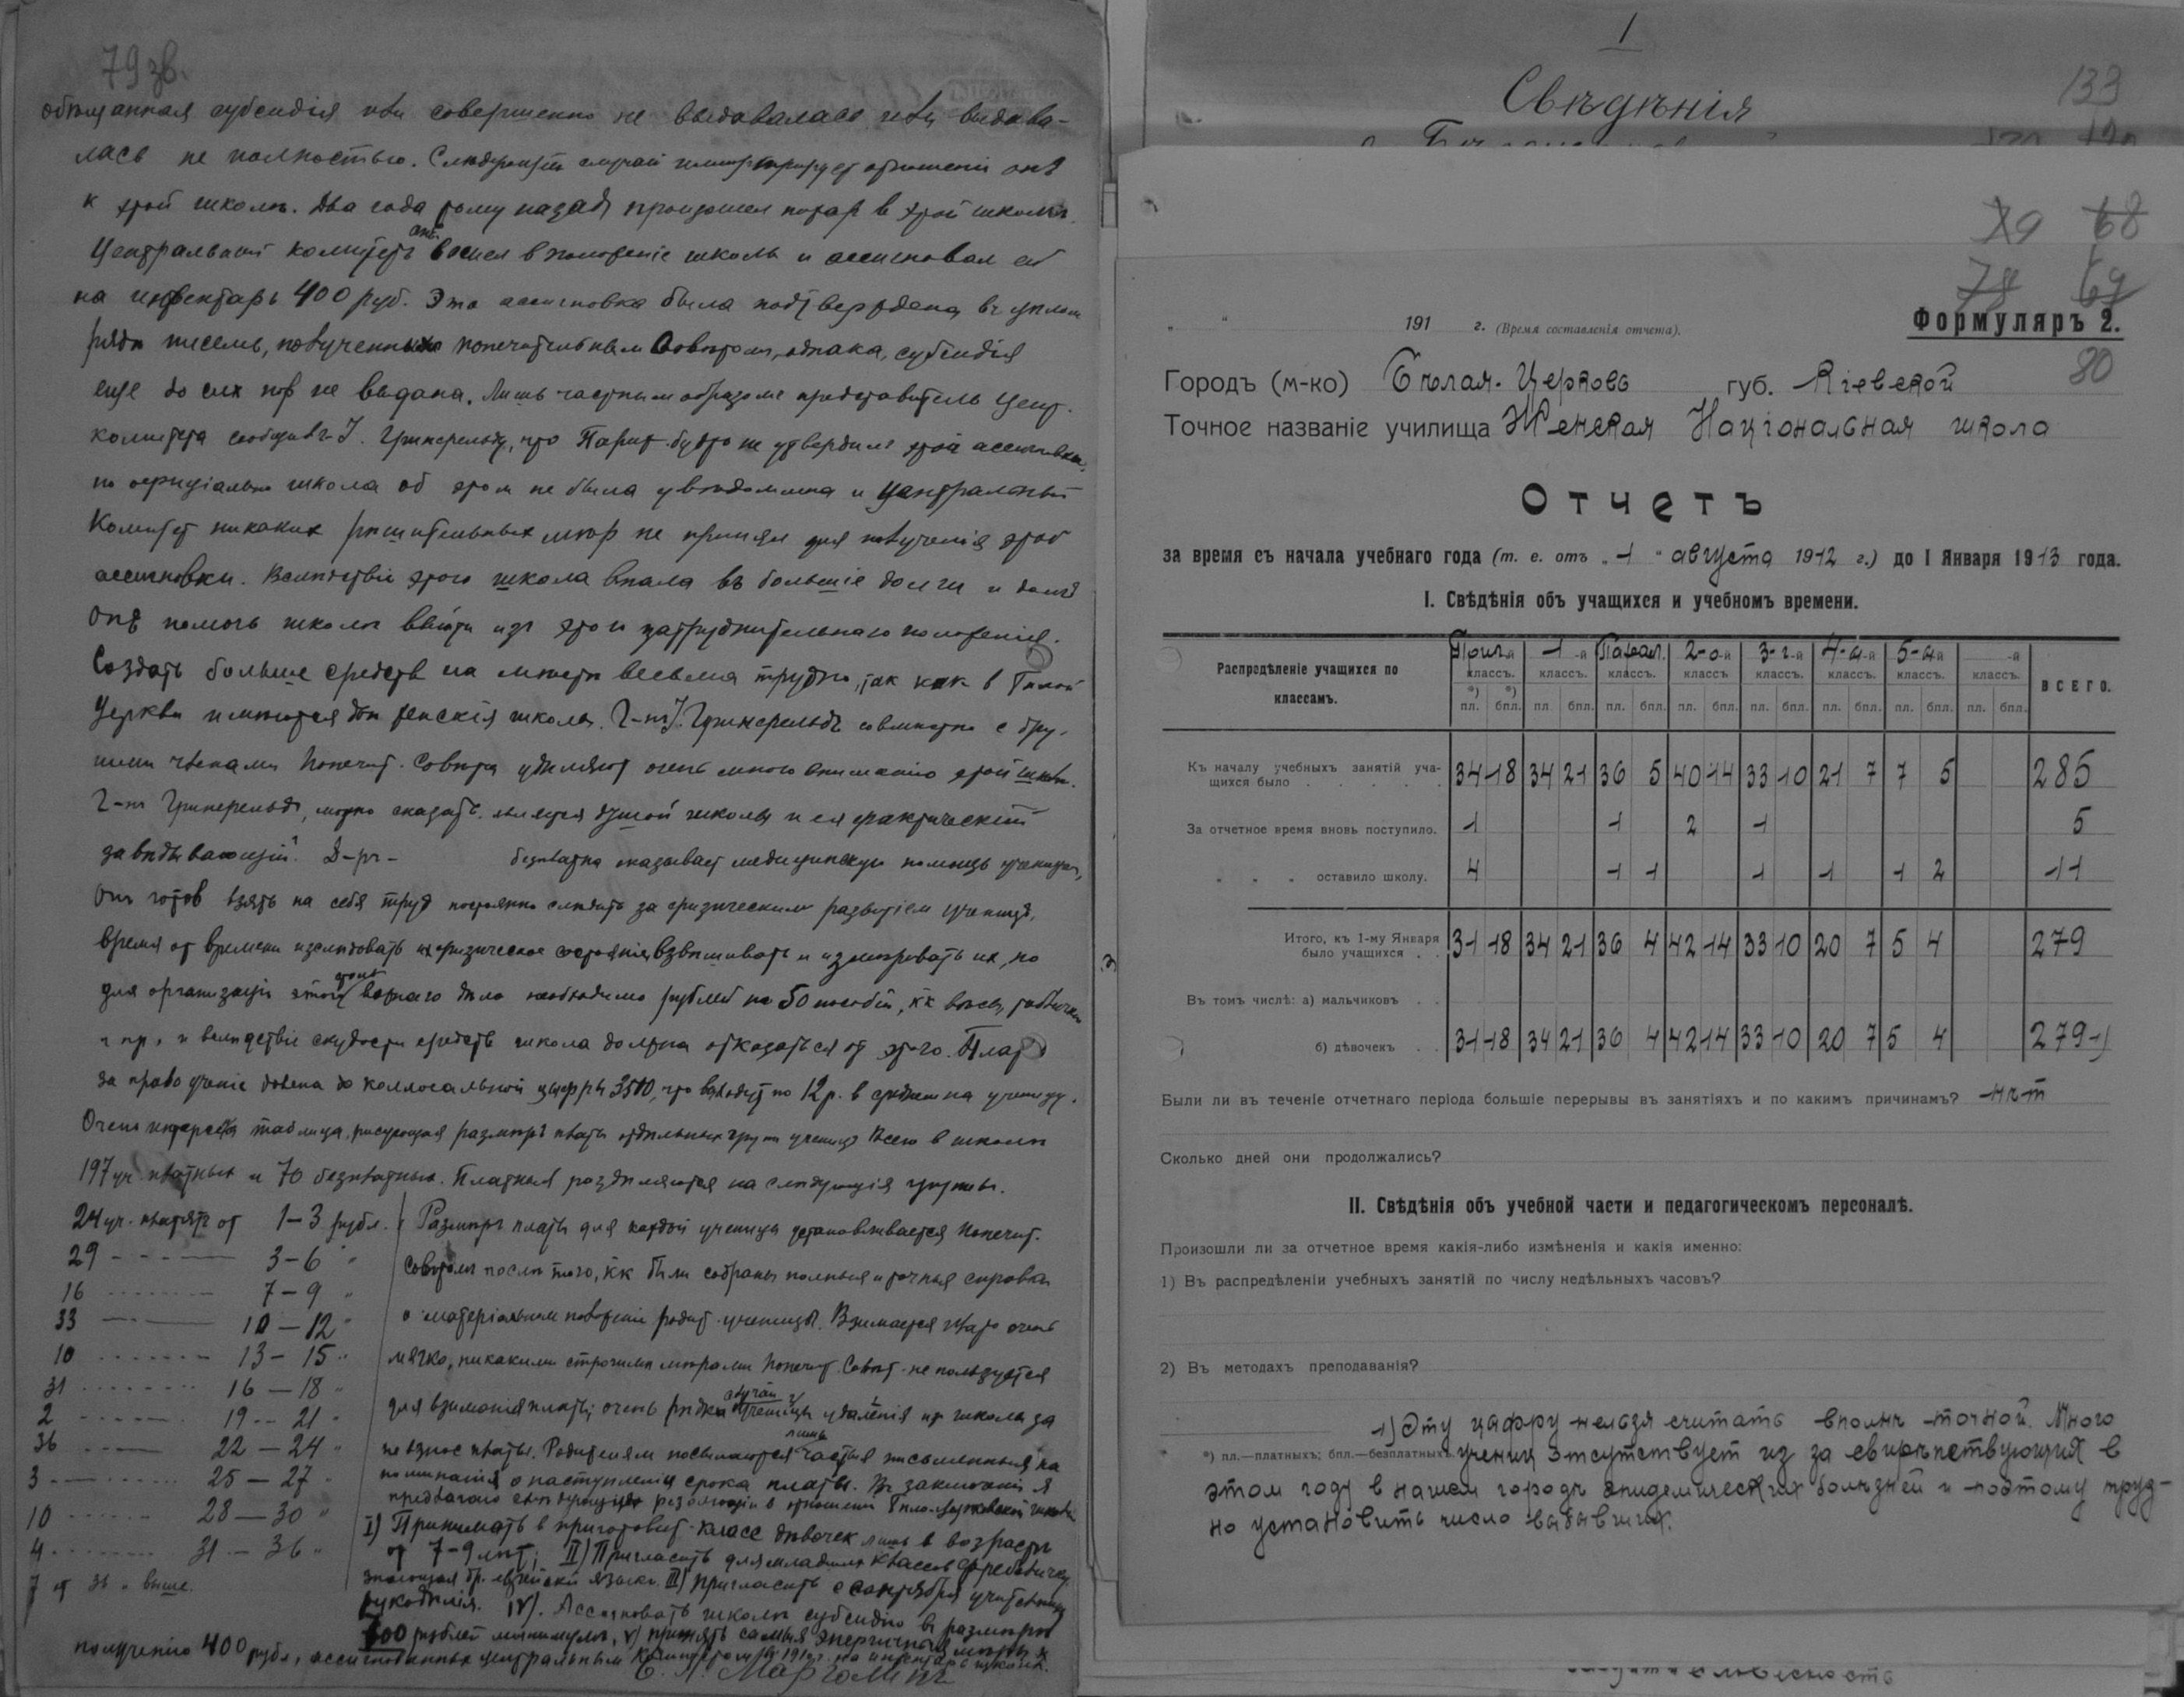 79 зв.
обѣщанная субсидія или совершенно не выдавалась или выдава-
лась не полностью. Слѣдующій случай иллюстрирует отношеніе опѣ
к этой школѣ. Два года тому назад произошел пожар в этой школѣ.
Центральный комитетъ вошел в положеніе школы и ассигновал ей
на инвентарь 400 руб. Эта ассигновка была подтверждена въ цѣлом
рядѣ писемъ, полученных попечительным Совѣтом, однако, субсидія
еще до сих пор не выдана. Лишь частным образом представитель Цент.
комитета сообщилъ І. Гринфельду, что Париж будто не утвердил этой ассигновки,
но оффиціально школа об этом не была увѣдомлена и Центральный
Комитет никаких рѣшительных мѣр не принял для полученія этой
ассигновки. Вслѣдствіе этого школа впала въ большіе долги и долг
ОПЕ помочь школѣ выйти изъ этого затруднительнаго положенія.
Создать больше средств на мѣстѣ весьма трудно, так как в Бѣлой
Церкви имѣются двѣ женскія школы. Г-нъ І. Гринфельдъ совмѣстно с дру-
гими членами Попечит. Совѣта удѣляют очень много вниманію этой школѣ.
Г-нъ Гринфельдъ, можно сказать, является душой школы и ея фактическій
завѣдывающій. Д-ръ - безплатно оказывает медицинскую помощь ученицам,
Он готов взять на себя труд постоянно слѣдить за физическим развитіем учениц,
время от времени изслѣдовать их физическое состояніе, взвѣшивать и измѣровать их, но
для организаціи этого дѣла необходимо рублей на 50 пособій, к'к вѣсы, таблички
и пр., и вслѣдствіе скудости средств школа должна отказаться от этого. Плата
за право ученія доведена до коллосальной цыфры 3500, что выходит по 12 р. в среднем на ученицу.
Очень интересна таблица, рисующая размѣръ платы отдѣльных групп учениц. Всего в школѣ
197 уч. платных и 70 безплатных. Платныя раздѣляются на слѣдующія группы.
24 уч. платят от 1–3 рубл.
29 3–6 "
16 7–9 "
33 10–12 "
10 13–15 "
31 16–18 "
2 19–21 "
36 22–24 "
3 25–27 "
10 28–30 "
4 31–36 "
7 от 36 и выше.
Размѣръ платы для каждой ученицы устанавливается Попечит.
Совѣтом послѣ того, к'к были собраны полныя и точныя справки
о матеріальном положеніи родит. ученицы. Взимается плата очень
мягко, никакими строгими мѣрами Попечит. Совѣт не пользуется
для взиманія платы; очень рѣдки случаи удаленія из школы за
не взнос платы. Родителям посылаются лишь частыя письменныя на-
поминанія о наступленіи срока платы. Въ заключеніи я
предлагаю слѣдующія резолюціи в отношеніи Бѣлоцерковской школы
I) Принимать в приготовит. классе дѣвочек лишь в возрастѣ
от 7–9 лѣт; II) Пригласить для младших классов фребеличку
знающая др. еврейскій языкъ. III) пригласить с сентября учительницу
рукодѣлія. IV). Ассигновать школѣ субсидію в размѣрѣ
600 рублей минимумъ, V) принять самыя энергичныя мѣры к
полученію 400 рубл., ассигнованных Центральным Комитетом в 191 г. на инвентарь школы.
С. Л. Марголинъ
I
Свѣдѣнія
133
79 68
78 69
80
" " 191 г. (Время составленія отчета).
Формуляръ 2.
Городъ (м-ко) Бѣлая-Церковь губ. Кіевской
Точное названіе училища Женская Національная школа
Отчетъ
за время съ начала учебнаго года (т. е. отъ „1" августа 1912 г.) до I Января 1913 года.
I. Свѣдѣнія объ учащихся и учебномъ времени.
Распредѣленіе учащихся по классамъ. Приг.-й классъ. 1-й классъ. Парал. классъ. 2-о-й классъ 3-г-й классъ. 4-ы-й классъ. 5-ы-й классъ. -й классъ. ВСЕГО.
*) пл. *) бпл. пл. бпл. пл. бпл. пл. бпл. пл. бпл. пл. бпл. пл. бпл. пл. бпл.
Къ началу учебныхъ занятій уча-
щихся было 34 18 34 21 36 5 40 14 33 10 21 7 7 5 285
За отчетное время вновь поступило. 1 1 2 1 5
" " " оставило школу. 4 1 1 1 1 1 2 11
Итого, къ 1-му Января
было учащихся 31 18 34 21 36 4 42 14 33 10 20 7 5 4 279
Въ томъ числѣ: а) мальчиковъ
б) дѣвочекъ 31 18 34 21 36 4 42 14 33 10 20 7 5 4 279 1)
Были ли въ теченіе отчетнаго періода большіе перерывы въ занятіяхъ и по какимъ причинамъ? нѣт
Сколько дней они продолжались?
II. Свѣдѣнія объ учебной части и педагогическомъ персоналѣ.
Произошли ли за отчетное время какія-либо измѣненія и какія именно:
1) Въ распредѣленіи учебныхъ занятій по числу недѣльныхъ часовъ?
2) Въ методахъ преподаванія?
1) Эту цифру нельзя считать вполнѣ точной. Много
*) пл.—платныхъ; бпл.—безплатныхъ.
учениц отсутствует из за свирѣпствующих в
этом году в нашем городѣ эпидемических болѣзней и поэтому труд-
но установить число выбывших.